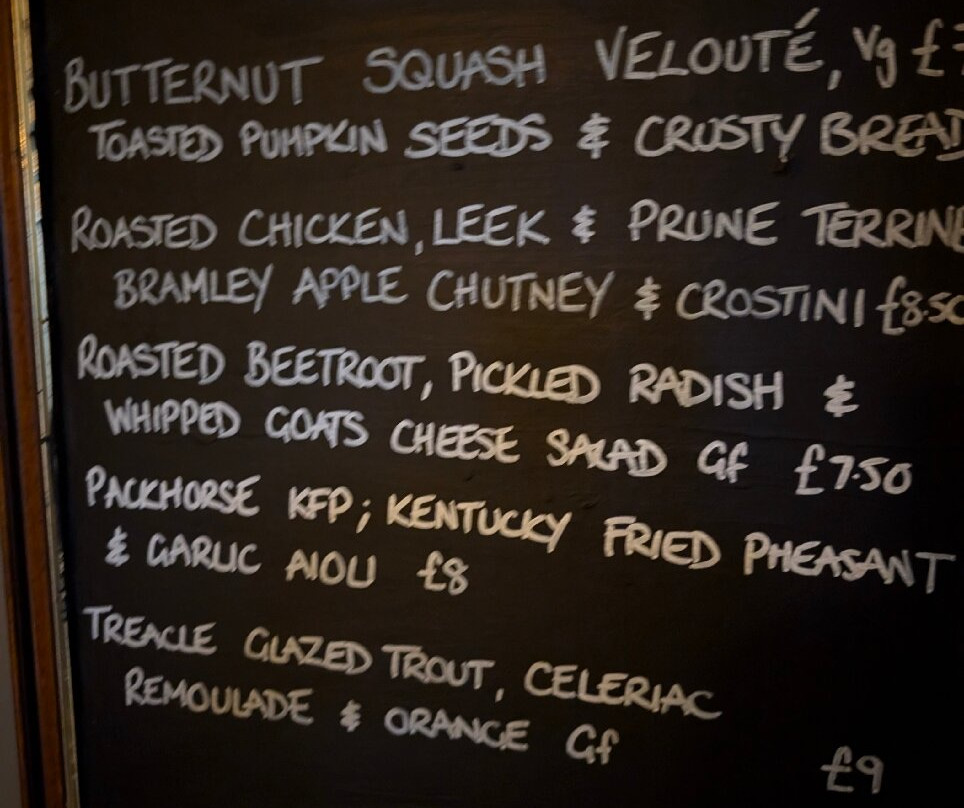 BUTTERNUT SQUASH VELOUTÉ, Vg £7
TOASTED PUMPKIN SEEDS & CRUSTY BREAD
ROASTED CHICKEN, LEEK & PRUNE TERRINE
BRAMLEY APPLE CHUTNEY & CROSTINI £8.50
ROASTED BEETROOT, PICKLED RADISH &
WHIPPED GOATS CHEESE SALAD Gf £7.50
PACKHORSE KFP; KENTUCKY FRIED PHEASANT
& GARLIC AIOLI £8
TREACLE GLAZED TROUT, CELERIAC
REMOULADE & ORANGE Gf
£9